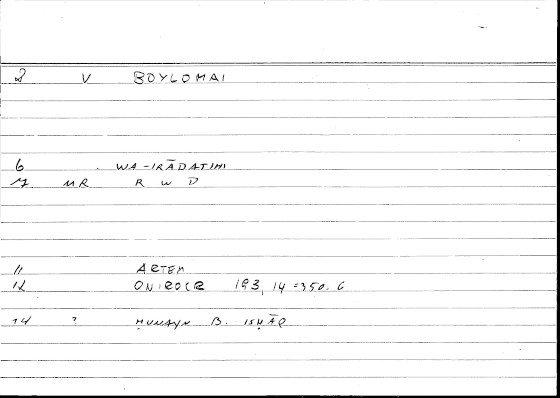 2 V BOYLOMAI
6 WA-IRĀDATIHI
7 MR R W D
11 ARTEM
12 ONIROCR 193, 14 = 350. 6
14 ? ḤUNAYN B. ISḤĀQ